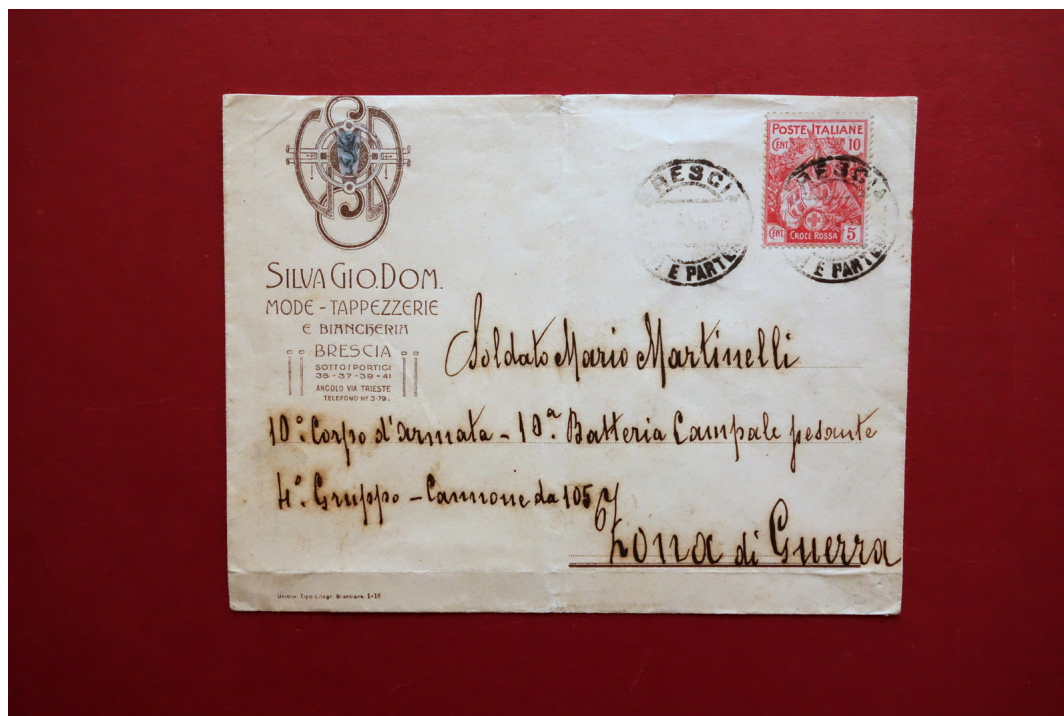 SILVA GIO. DOM.
MODE - TAPPEZZERIE
E BIANCHERIA
BRESCIA
SOTTO I PORTICI
35 - 37 - 39 - 41
ANGOLO VIA TRIESTE
TELEFONO Nº 3-79
BRESCIA
E PARTENZ
POSTE ITALIANE
CENT 10
CENT 5
CROCE ROSSA
BRESCIA
E PARTENZ
Soldato Mario Martinelli
10º. Corpo d'armata - 10ª. Batteria Campale pesante
4º. Gruppo - Cannone da 105
Zona di Guerra
Unione Tipo-Litogr. Bresciana. 1-16